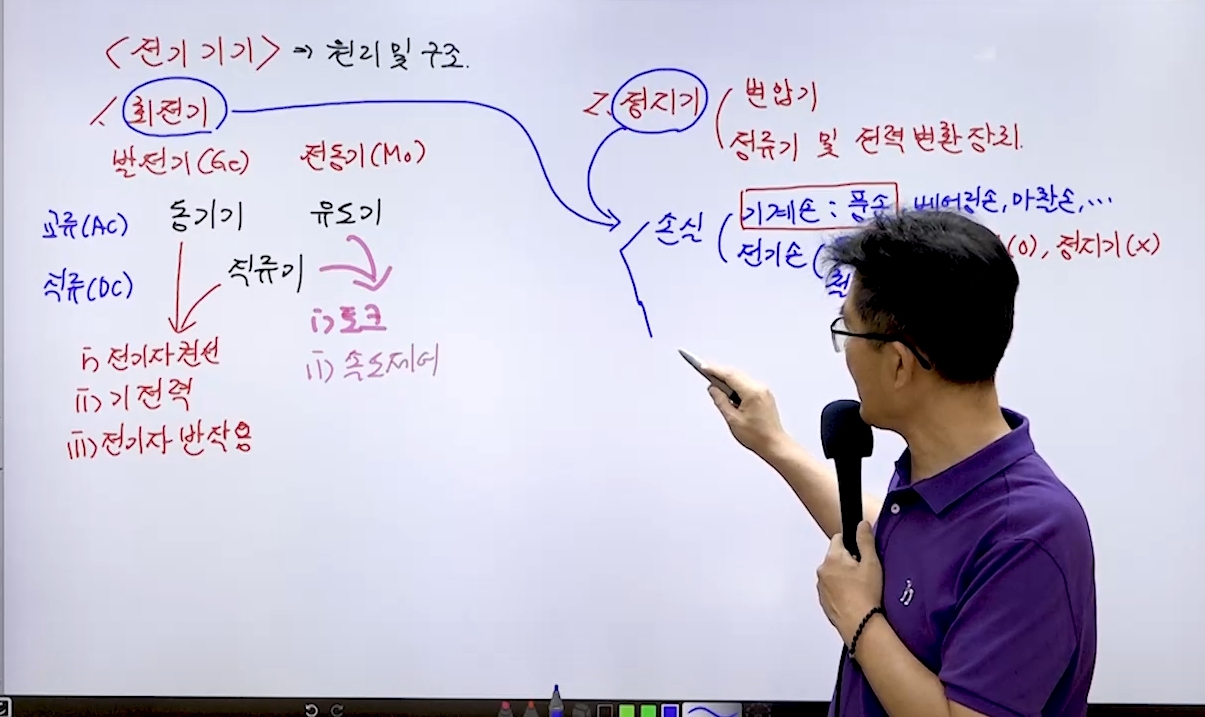 <전기 기기> ⇒ 원리 및 구조.
1. 회전기
발전기(Ge) 전동기(Mo)
교류(AC) 동기기 유도기
직류(DC) 직류기
i) 전기자 권선
ii) 기전력
iii) 전기자 반작용
i) 토크
ii) 속도제어
2. 정지기 ( 변압기
정류기 및 전력 변환 장치.
손실 ( 기계손 : 풍손, 베어링손, 마찰손, …
전기손 ( (O), 정지기(X)